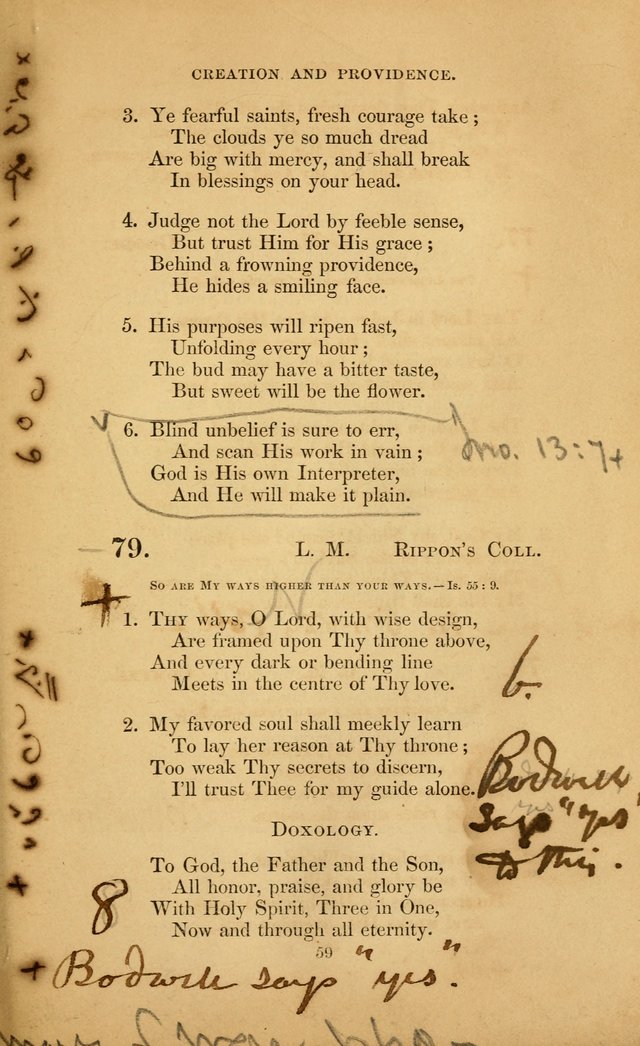 CREATION AND PROVIDENCE.
3. Ye fearful saints, fresh courage take ;
The clouds ye so much dread
Are big with mercy, and shall break
In blessings on your head.
4. Judge not the Lord by feeble sense,
But trust Him for His grace ;
Behind a frowning providence,
He hides a smiling face.
5. His purposes will ripen fast,
Unfolding every hour ;
The bud may have a bitter taste,
But sweet will be the flower.
6. Blind unbelief is sure to err,
And scan His work in vain ;
God is His own Interpreter,
And He will make it plain.
Jno. 13:7+
79. L. M. RIPPON'S COLL.
SO ARE MY WAYS HIGHER THAN YOUR WAYS.—IS. 55 : 9.
1. THY ways, O Lord, with wise design,
Are framed upon Thy throne above,
And every dark or bending line
Meets in the centre of Thy love.
6.
2. My favored soul shall meekly learn
To lay her reason at Thy throne ;
Too weak Thy secrets to discern,
I'll trust Thee for my guide alone.
Bodwell
says "yes"
to this.
DOXOLOGY.
To God, the Father and the Son,
All honor, praise, and glory be
With Holy Spirit, Three in One,
Now and through all eternity.
8
59
+ Bodwell says "yes".